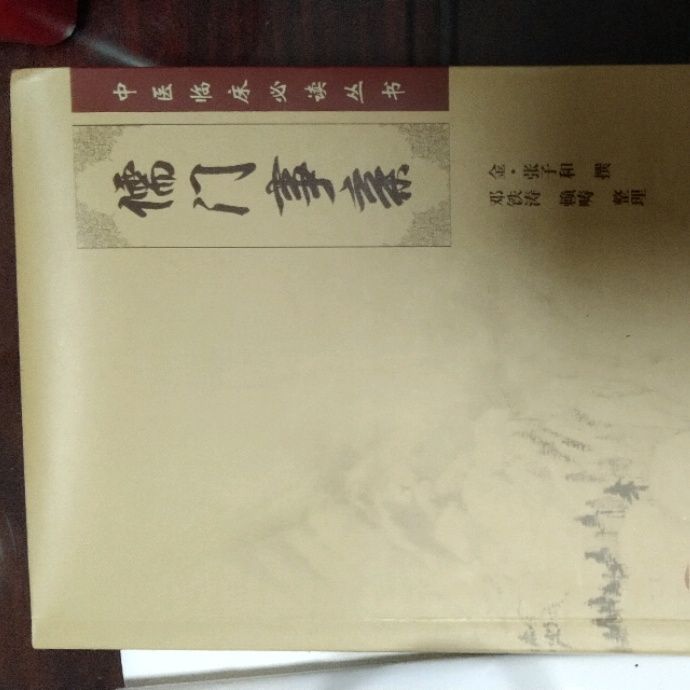 中医临床必读丛书
儒门事亲
金·张子和 撰
邓铁涛 赖畴 整理